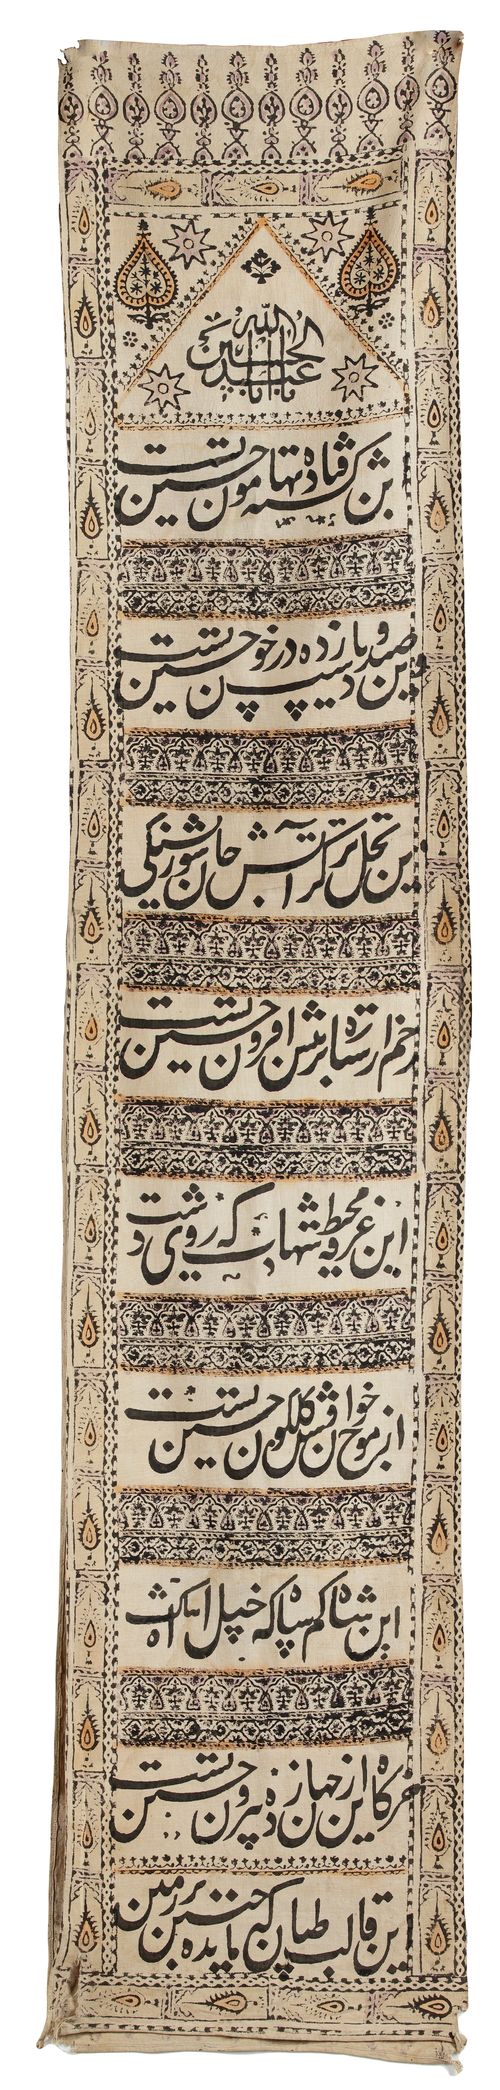 یا ابا عبد الله الحسین
این کشته فتاده بهامون حسین تست
وین صید دست و پا زده در خون حسین تست
این نخل تر کز آتش جان سوز تشنگی
زخم از ستاره بر تنش افزون حسین تست
این غرقه محیط شهادت که روی دشت
از موج خون گلگون حسین تست
این شاه کم سپاه که خیل اشک آه
خرگاه ازین جهان زده بیرون حسین تست
این قالب طپان که چنین مانده بر زمین